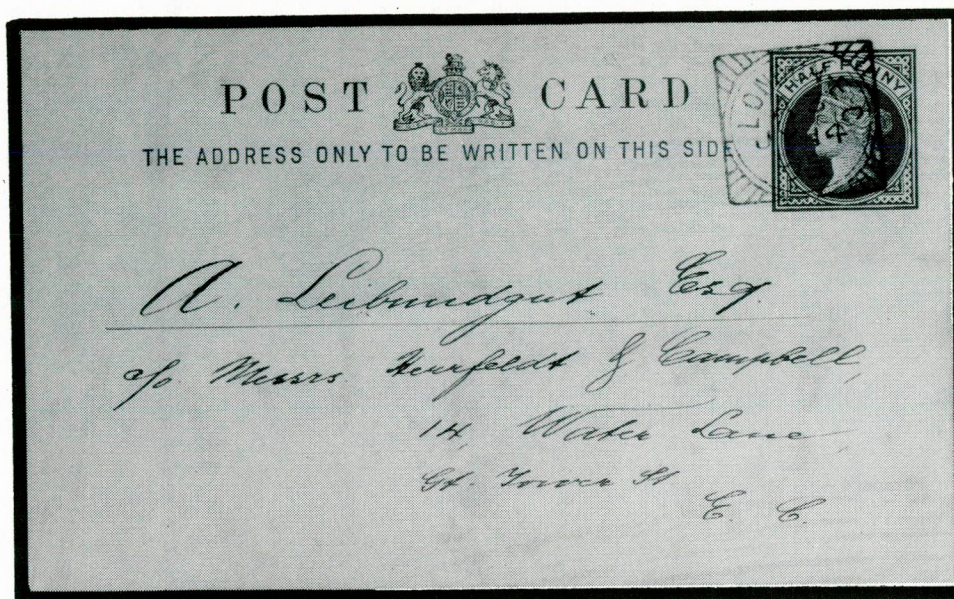 POST CARD
THE ADDRESS ONLY TO BE WRITTEN ON THIS SIDE
HALFPENNY
LON
A. Leibundgut Esq.
c/o. Messrs. Herrfeldt & Campbell,
14, Water Lane,
Gt. Tower St
E. C.